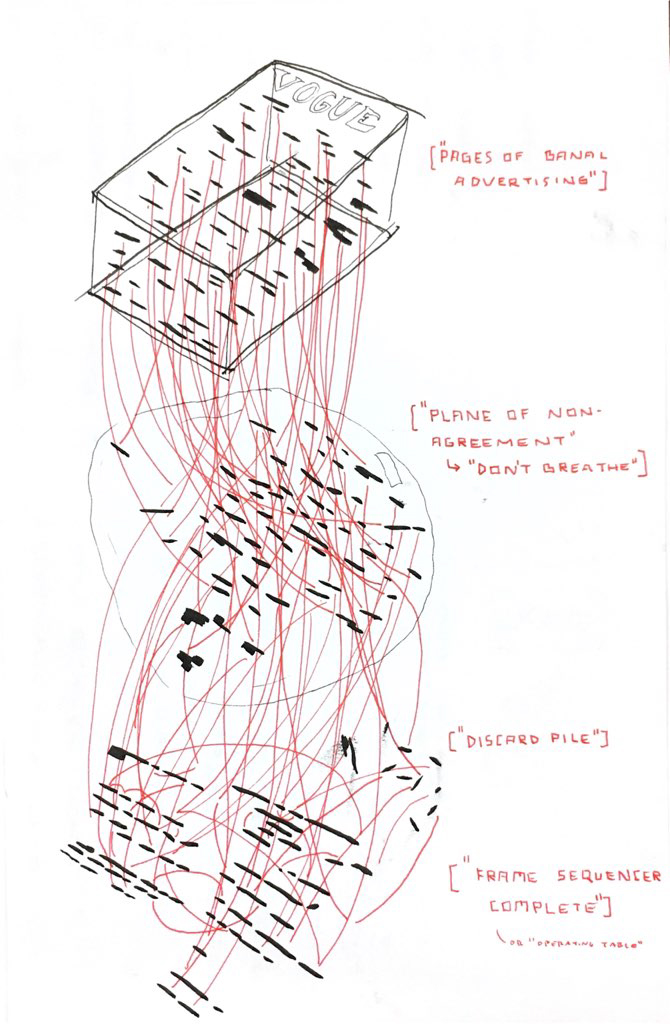 VOGUE
["PAGES OF BANAL
ADVERTISING"]
["PLANE OF NON-
AGREEMENT"
↳ "DON'T BREATHE"]
["DISCARD PILE"]
["FRAME SEQUENCER
COMPLETE"]
OR "OPERATING TABLE"